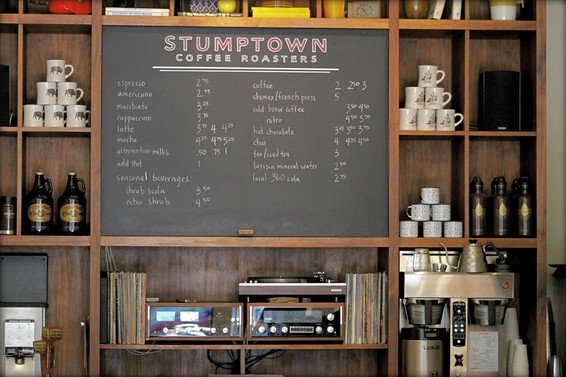 STUMPTOWN
COFFEE ROASTERS
espresso 2 75
americano 2 75
macchiato 3 25
cappuccino 3 75
latte 3 75 4 4 25
mocha 4 25 4 75 5
alternative milks .50 .75 1
add shot 1
seasonal beverages:
shrub soda 3 50
nitro shrub 4 50
coffee 2 2 50 3
chemex/french press 5
cold brew coffee 3 50 4 50
nitro 4 50 5 50
hot chocolate 3 25 3 50 3 75
chai 4 4 25 4 75
tea/iced tea 3
mineral water 2 50
local 360 cola 2 75
LUXUS